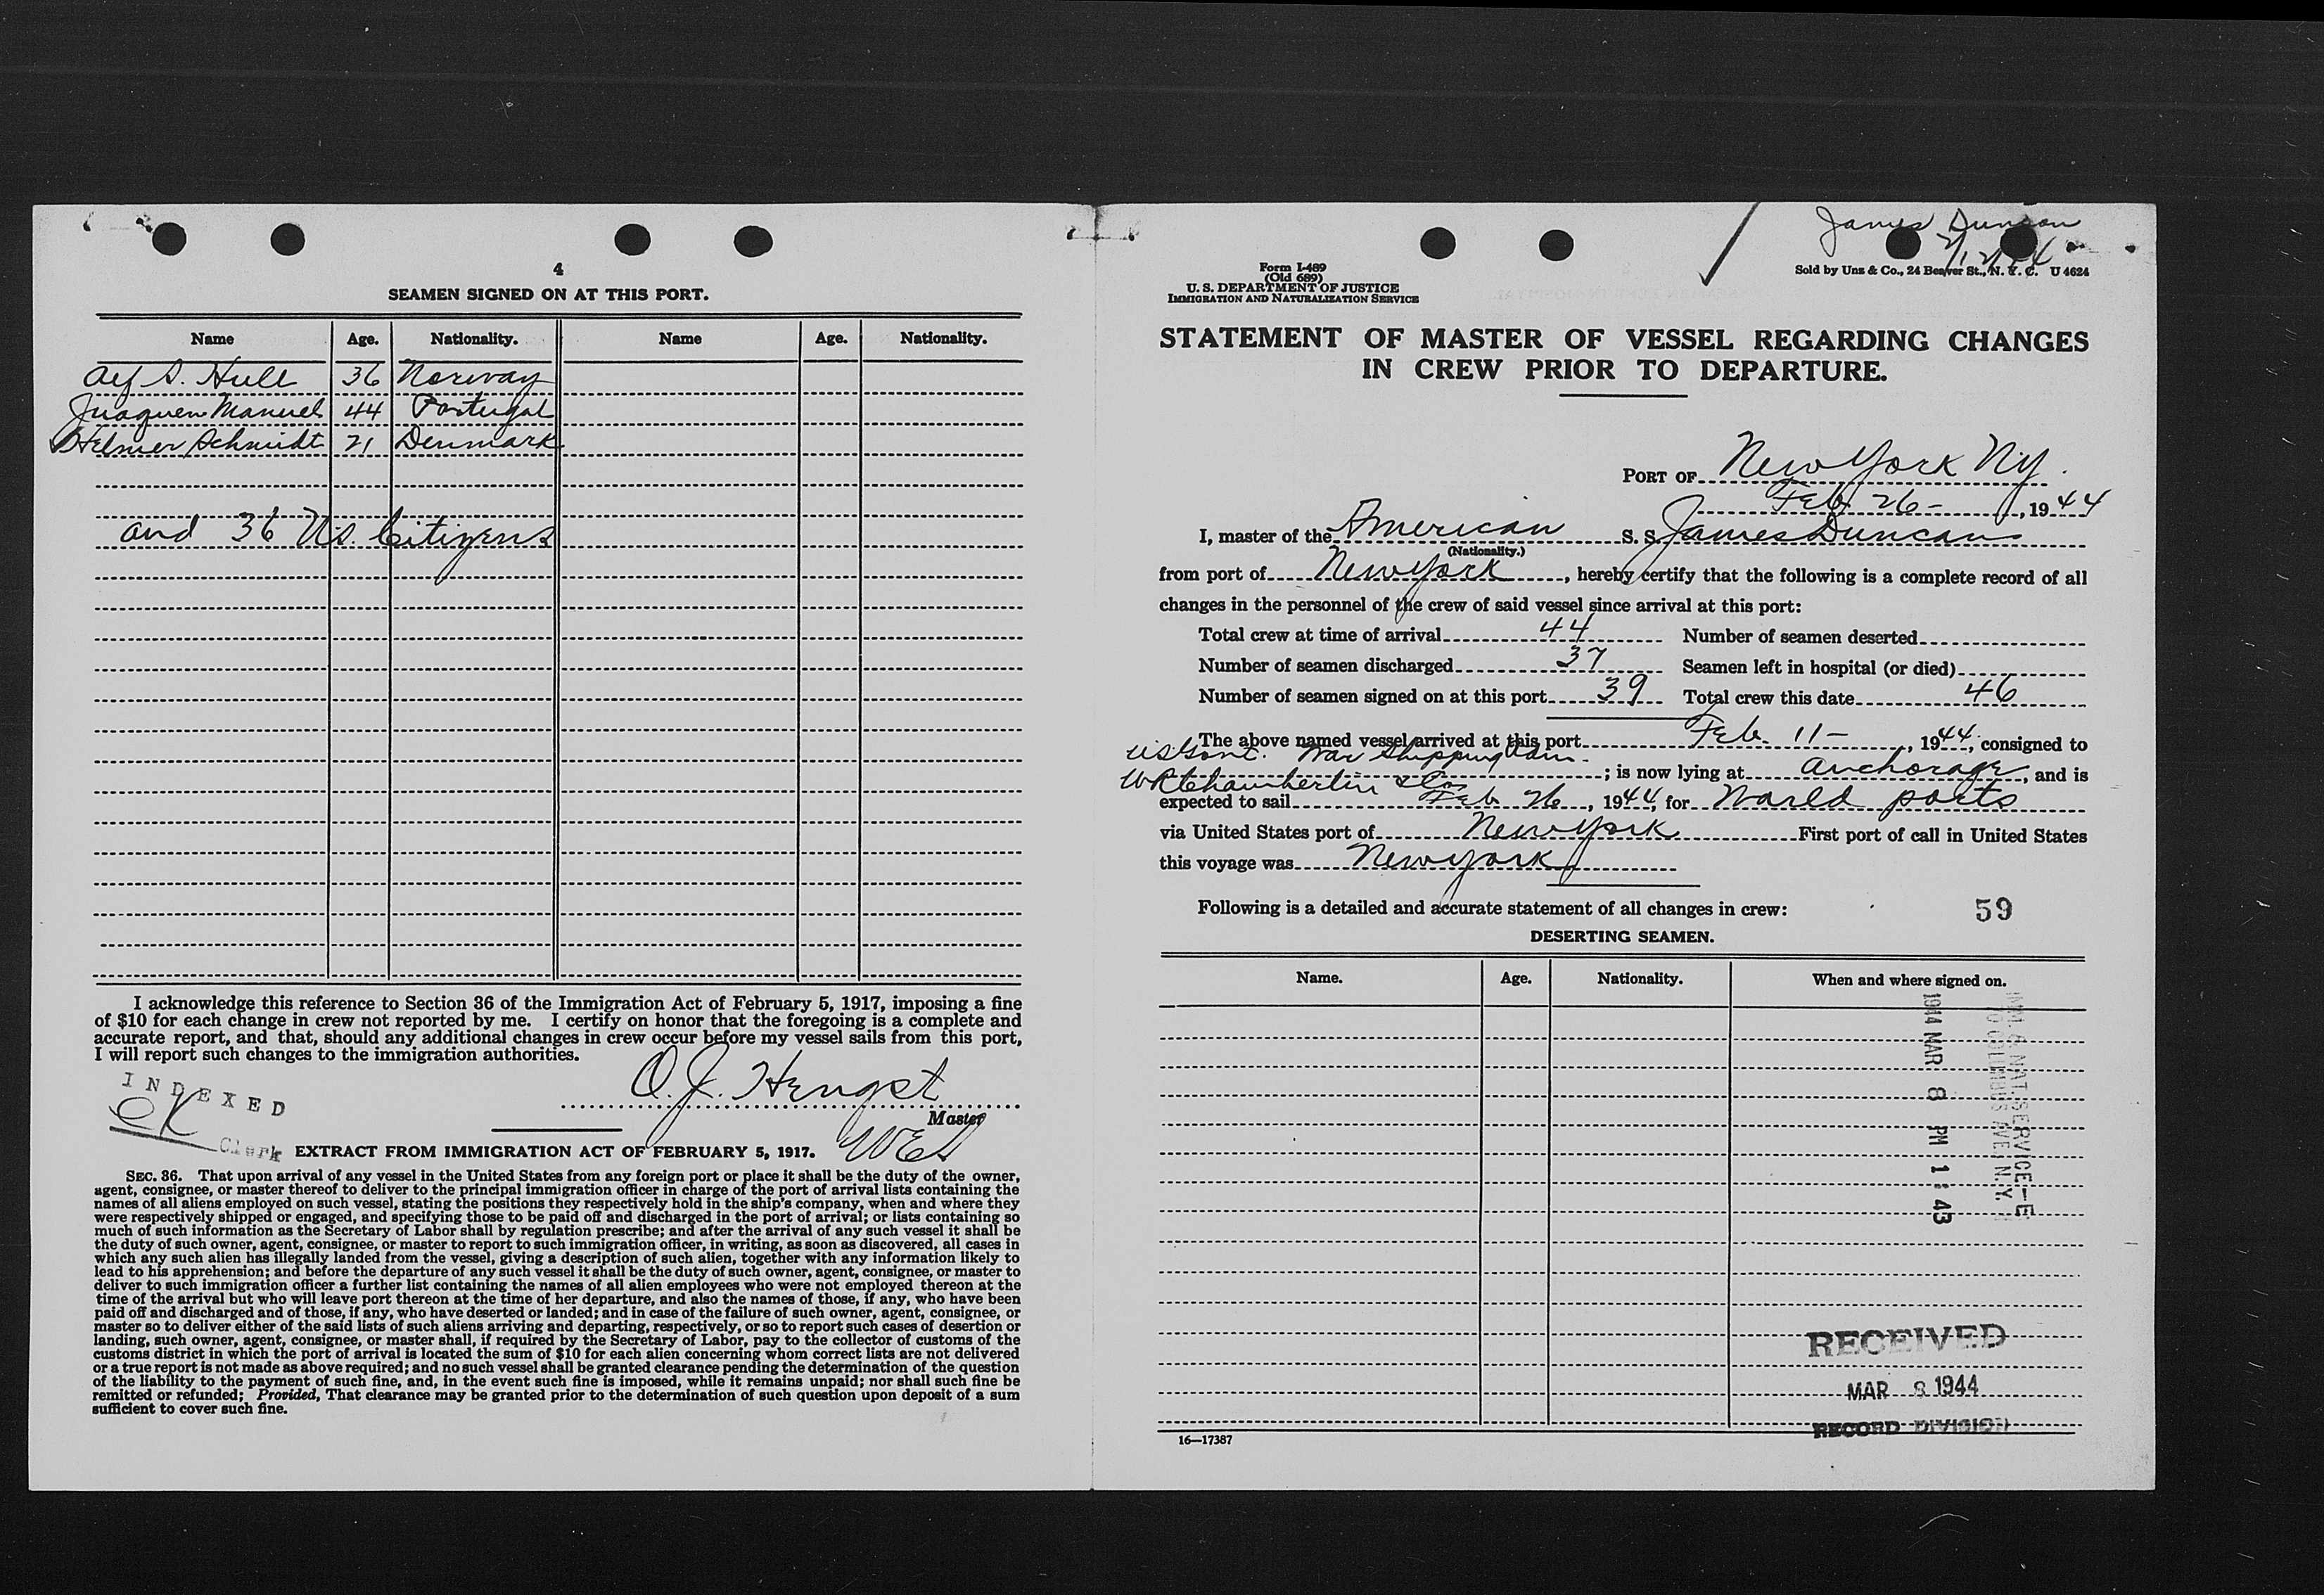 4
SEAMEN SIGNED ON AT THIS PORT.
Name Age. Nationality. Name Age. Nationality.
Alf S. Hull 36 Norway
Juaquen Manuel 44 Portugal
Helmer Schmidt 21 Denmark
and 36 U.S. Citizens
I acknowledge this reference to Section 36 of the Immigration Act of February 5, 1917, imposing a fine
of $10 for each change in crew not reported by me. I certify on honor that the foregoing is a complete and
accurate report, and that, should any additional changes in crew occur before my vessel sails from this port,
I will report such changes to the immigration authorities.
O. J. Hengst
Master
INDEXED
Clerk
EXTRACT FROM IMMIGRATION ACT OF FEBRUARY 5, 1917.
SEC. 36. That upon arrival of any vessel in the United States from any foreign port or place it shall be the duty of the owner,
agent, consignee, or master thereof to deliver to the principal immigration officer in charge of the port of arrival lists containing the
names of all aliens employed on such vessel, stating the positions they respectively hold in the ship's company, when and where they
were respectively shipped or engaged, and specifying those to be paid off and discharged in the port of arrival; or lists containing so
much of such information as the Secretary of Labor shall by regulation prescribe; and after the arrival of any such vessel it shall be
the duty of such owner, agent, consignee, or master to report to such immigration officer, in writing, as soon as discovered, all cases in
which any such alien has illegally landed from the vessel, giving a description of such alien, together with any information likely to
lead to his apprehension; and before the departure of any such vessel it shall be the duty of such owner, agent, consignee, or master to
deliver to such immigration officer a further list containing the names of all alien employees who were not employed thereon at the
time of the arrival but who will leave port thereon at the time of her departure, and also the names of those, if any, who have been
paid off and discharged and of those, if any, who have deserted or landed; and in case of the failure of such owner, agent, consignee, or
master so to deliver either of the said lists of such aliens arriving and departing, respectively, or so to report such cases of desertion or
landing, such owner, agent, consignee, or master shall, if required by the Secretary of Labor, pay to the collector of customs of the
customs district in which the port of arrival is located the sum of $10 for each alien concerning whom correct lists are not delivered
or a true report is not made as above required; and no such vessel shall be granted clearance pending the determination of the question
of the liability to the payment of such fine, and, in the event such fine is imposed, while it remains unpaid; nor shall such fine be
remitted or refunded; Provided, That clearance may be granted prior to the determination of such question upon deposit of a sum
sufficient to cover such fine.
James Duncan
Form I-489
(Old 689)
U. S. DEPARTMENT OF JUSTICE
IMMIGRATION AND NATURALIZATION SERVICE
Sold by Unz & Co., 24 Beaver St., N. Y. C. U 4624
STATEMENT OF MASTER OF VESSEL REGARDING CHANGES
IN CREW PRIOR TO DEPARTURE.
PORT OF New York NY.
Feb 26-, 1944
I, master of the American S. S. James Duncan
(Nationality.)
from port of New York, hereby certify that the following is a complete record of all
changes in the personnel of the crew of said vessel since arrival at this port:
Total crew at time of arrival 44 Number of seamen deserted
Number of seamen discharged 37 Seamen left in hospital (or died)
Number of seamen signed on at this port 39 Total crew this date 46
The above named vessel arrived at this port Feb. 11-, 1944, consigned to
US Govt. War Shipping Adm. ; is now lying at anchorage, and is
WR Chamberlin & Co
expected to sail Feb 26, 1944, for World ports
via United States port of New York First port of call in United States
this voyage was New York
Following is a detailed and accurate statement of all changes in crew: 59
DESERTING SEAMEN.
Name. Age. Nationality. When and where signed on.
IMM. & NAT. SERVICE—E
70 COLUMBUS AVE. N.Y.
1944 MAR 8 PM 1:43
RECEIVED
MAR 8 1944
RECORD DIVISION
16—17387